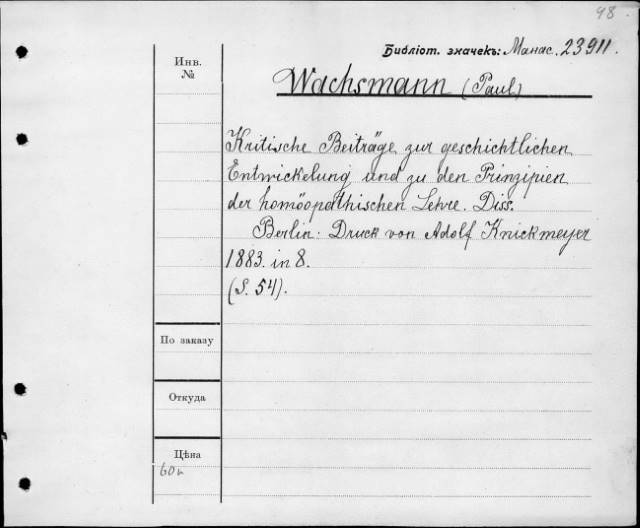 98
Библіот. значекъ: Манас. 23911.
Инв.
№
Wachsmann (Paul)
Kritische Beiträge zur geschichtlichen
Entwickelung und zu den Prinzipien
der homöopathischen Lehre. Diss.
Berlin: Druck von Adolf Knickmeyer
1883. in 8.
(S. 54).
По заказу
Откуда
Цѣна
60к